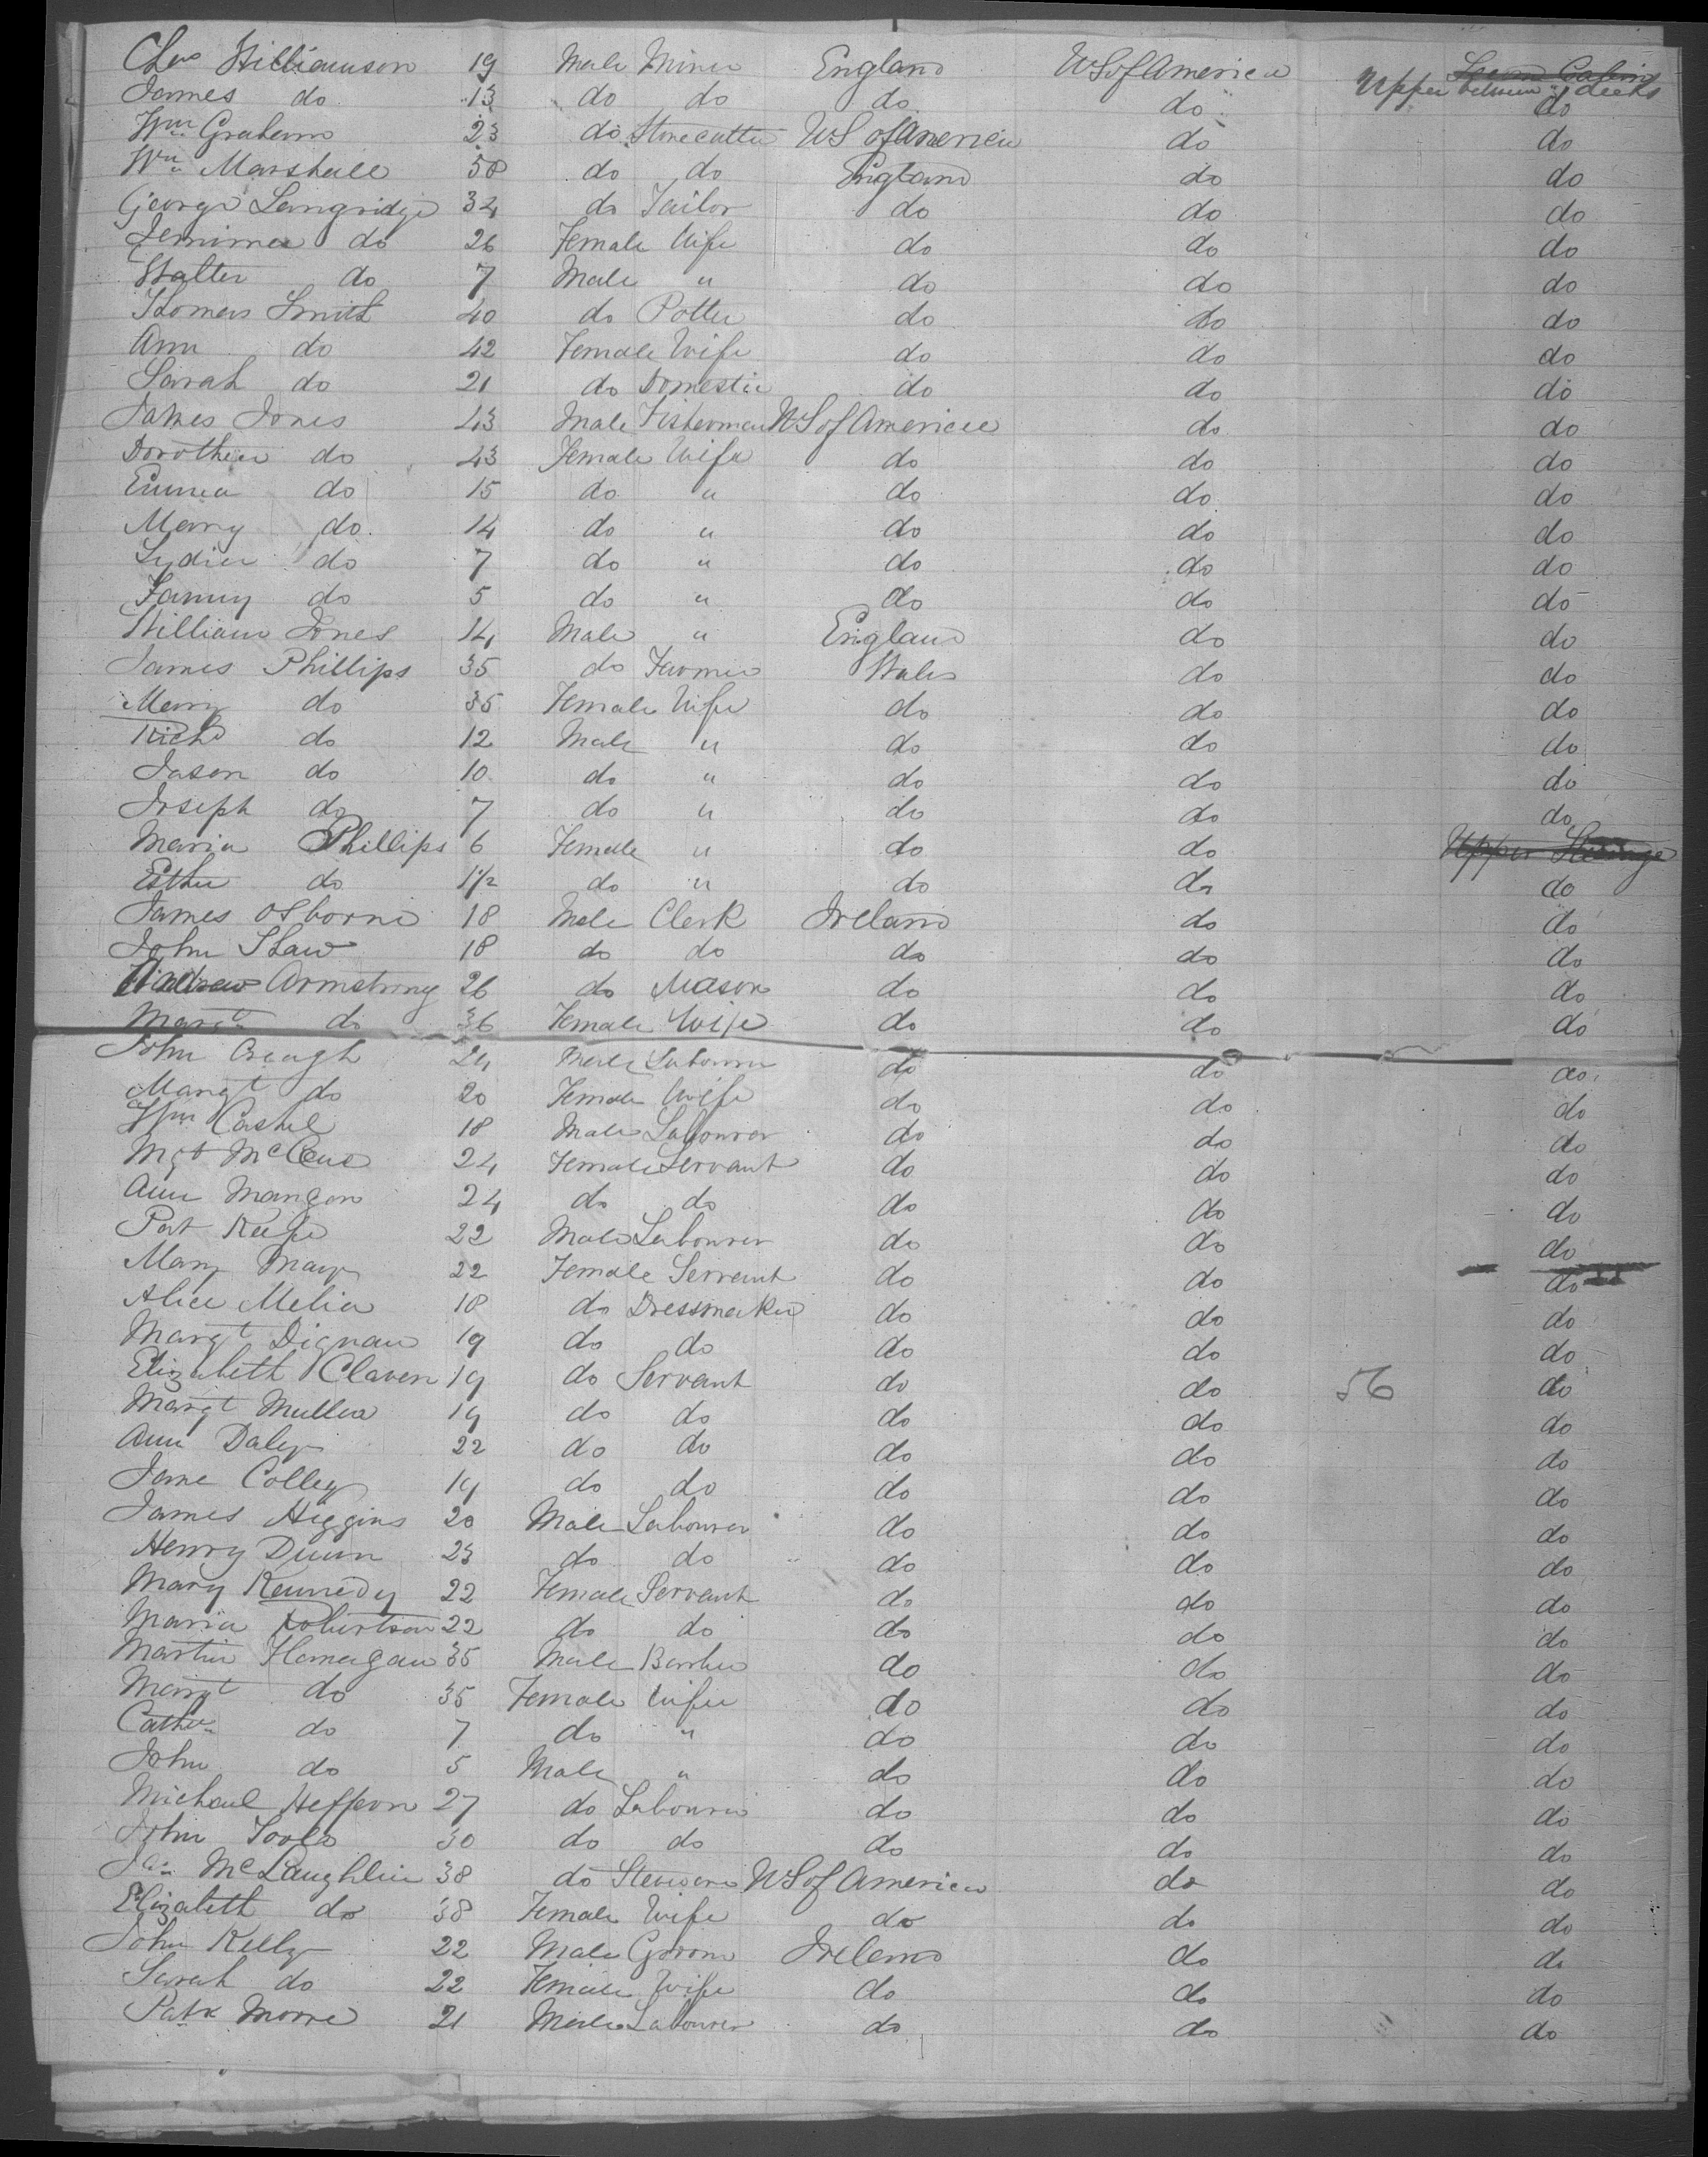 Chas Williamson 19 Male Miner England US of America Second Cabin
Upper between decks
James do 13 do do do do do
Wm Graham 23 do Stonecutter US of America do do
Wm Marshall 58 do do England do do
George Langridge 34 do Tailor do do do
Jemima do 26 Female Wife do do do
Walter do 7 Male " do do do
Thomas Smith 40 do Potter do do do
Ann do 42 Female Wife do do do
Sarah do 21 do Domestic do do do
James Jones 43 Male Fisherman US of America do do
Dorothea do 43 Female Wife do do do
Emma do 15 do " do do do
Mary do 14 do " do do do
Lydia do 7 do " do do do
Fanny do 5 do " do do do
William Jones 14 Male " England do do
James Phillips 35 do Farmer Wales do do
Mary do 35 Female Wife do do do
Richd do 12 Male " do do do
Jason do 10 do " do do do
Joseph do 7 do " do do do
Maria Phillips 6 Female " do do Upper Steerage
Esther do 1½ do " do do do
James Osborne 18 Male Clerk Ireland do do
John Shaw 18 do do do do do
Andrew Armstrong 26 do Mason do do do
Margt do 36 Female Wife do do do
John Creagh 24 Male Labourer do do do
Margt do 20 Female Wife do do do
Wm Cashel 18 Male Labourer do do do
Mgt 24 Female Servant do do do
Ann Mangan 24 do do do do do
Pat Keefe 22 Male Labourer do do do
Mary 22 Female Servant do do do
Alice Melia 18 do Dressmaker do do do
Margt Dignan 19 do do do do do
Elizabeth Claven 19 do Servant do do 56 do
Margt Mullen 19 do do do do do
Ann Daley 22 do do do do do
Jane Colley 19 do do do do do
James Higgins 20 Male Labourer do do do
Henry Dunn 23 do do do do do
Mary Kennedy 22 Female Servant do do do
Maria Robertson 22 do do do do do
Martin Flanagan 35 Male Barber do do do
Margt do 35 Female Wife do do do
Cathe do 7 do " do do do
John do 5 Male " do do do
Michael Heffron 27 do Labourer do do do
John Toole 30 do do do do do
Jas McLaughlin 38 do Steward US of America do do
Elizabeth do 38 Female Wife do do do
John Kelly 22 Male Groom Ireland do do
Sarah do 22 Female Wife do do do
Patk Moore 21 Male Labourer do do do